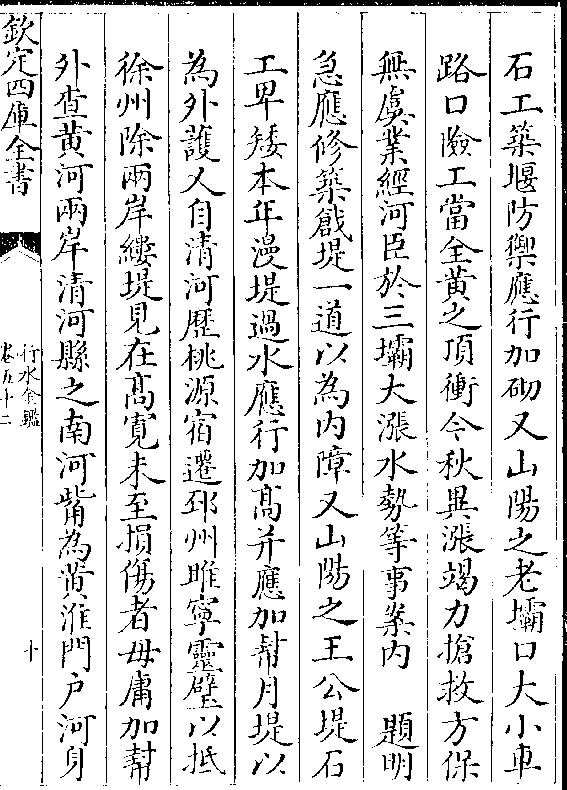 石工築堰防禦應行加砌又山陽之老壩口大小車
路口險工當全黄之頂衝今秋異漲竭力搶救方保
無虞業經河臣於三壩大漲水勢等事案内　題明
急應修築戧堤一道以為内障又山陽之王公堤石
工卑矮本年漫堤過水應行加高并應加幫月堤以
為外護又自清河歷桃源宿遷邳州睢寧靈壁以抵
徐州除兩岸縷堤見在高寛未至損傷者毋庸加幫
外查黄河兩岸清河縣之南河嘴為黄淮門户河身
欽定四庫全書
行水金鑑
卷五十二
十